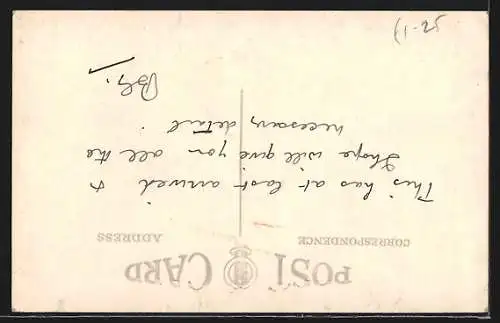 POST CARD
CORRESPONDENCE
ADDRESS
This has at last arrived &
I hope will give you all the
necessary detail.
(1-25